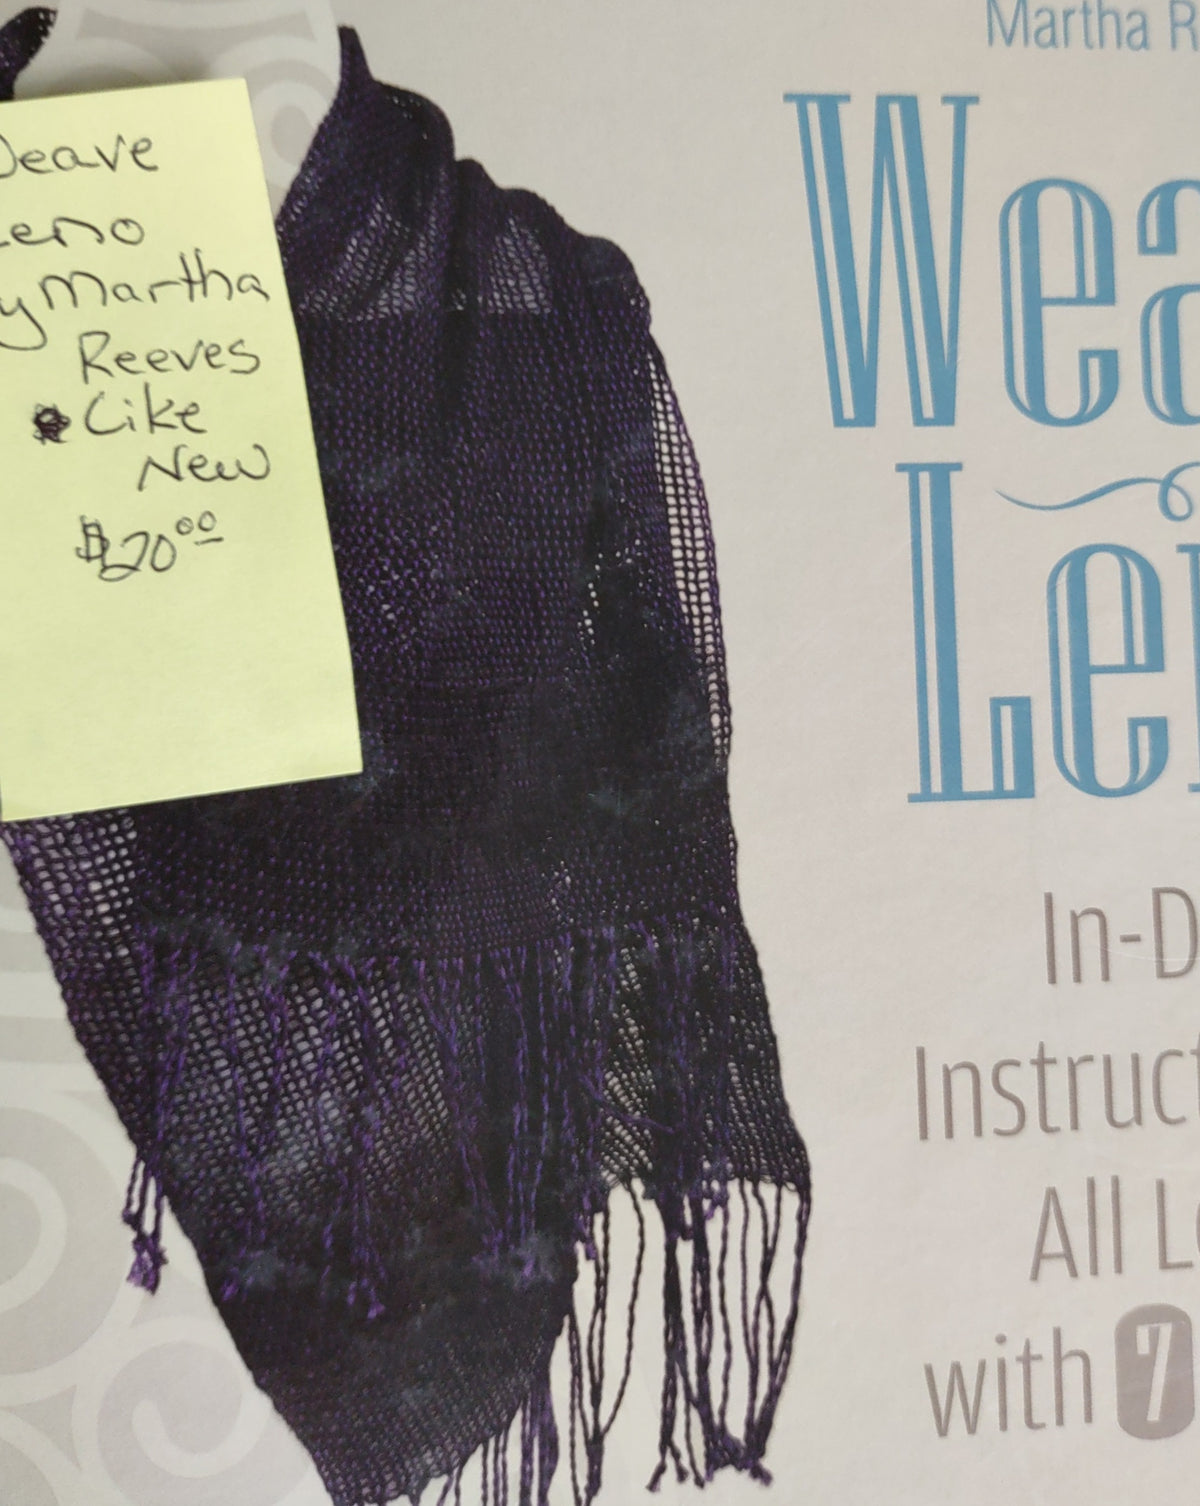 eave
eno
y Martha
Reeves
Like
New
$20.00
Martha R
Wea
Le
In-D
Instruct
All L
with 7